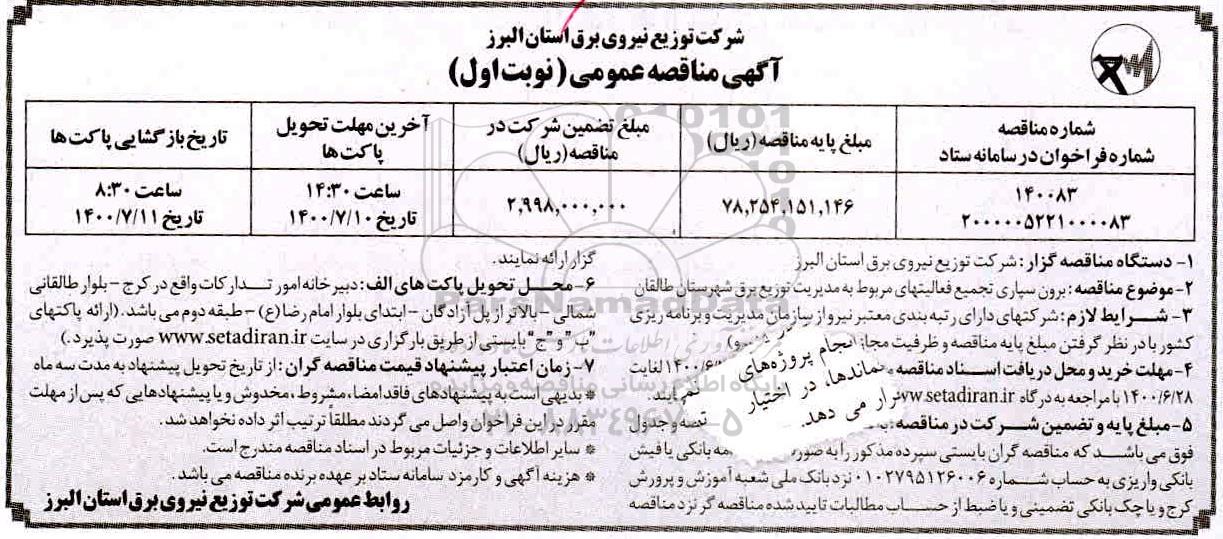 شرکت توزیع نیروی برق استان البرز
آگهی مناقصه عمومی (نوبت اول)
شماره مناقصه
شماره فراخوان در سامانه ستاد
مبلغ پایه مناقصه (ریال)
مبلغ تضمین شرکت در
مناقصه (ریال)
آخرین مهلت تحویل
پاکت ها
تاریخ بازگشایی پاکت ها
۱۴۰۰۸۳
۲۰۰۰۰۰۵۲۲۱۰۰۰۰۸۳
۷۸,۲۵۴,۱۵۱,۱۴۶
۲,۹۹۸,۰۰۰,۰۰۰
ساعت ۱۴:۳۰
تاریخ ۱۴۰۰/۷/۱۰
ساعت ۸:۳۰
تاریخ ۱۴۰۰/۷/۱۱
۱- دستگاه مناقصه گزار: شرکت توزیع نیروی برق استان البرز
۲- موضوع مناقصه: برون سپاری تجمیع فعالیتهای مربوط به مدیریت توزیع برق شهرستان طالقان
۳- شرایط لازم: شرکتهای دارای رتبه بندی معتبر نیرو از سازمان مدیریت و برنامه ریزی
کشور با در نظر گرفتن مبلغ پایه مناقصه و ظرفیت مجاز
۴- مهلت خرید و محل دریافت اسناد مناقصه لغایت
۱۴۰۰/۶/۲۸ با مراجعه به درگاه www.setadiran.ir
۵- مبلغ پایه و تضمین شرکت در مناقصه: و جدول
فوق می باشد که مناقصه گران بایستی سپرده مذکور را به صورت بانکی یا فیش
بانکی واریزی به حساب شماره ۰۱۰۲۷۹۵۱۲۶۰۰۶ نزد بانک ملی شعبه آموزش و پرورش
کرج و یا چک بانکی تضمینی و یا ضبط از حساب مطالبات تایید شده مناقصه گر نزد مناقصه
گزار ارائه نمایند.
۶- محل تحویل پاکت های الف: دبیرخانه امور تدارکات واقع در کرج - بلوار طالقانی
شمالی - بالاتر از پل آزادگان - ابتدای بلوار امام رضا (ع) - طبقه دوم می باشد. (ارائه پاکتهای
"ب" و "ج" بایستی از طریق بارگزاری در سایت www.setadiran.ir صورت پذیرد.)
۷- زمان اعتبار پیشنهاد قیمت مناقصه گران: از تاریخ تحویل پیشنهاد به مدت سه ماه
* بدیهی است به پیشنهادهای فاقد امضاء، مشروط، مخدوش و یا پیشنهادهایی که پس از مهلت
مقرر در این فراخوان واصل می گردند مطلقاً ترتیب اثر داده نخواهد شد.
* سایر اطلاعات و جزئیات مربوط در اسناد مناقصه مندرج است.
* هزینه آگهی و کارمزد سامانه ستاد بر عهده برنده مناقصه می باشد.
روابط عمومی شرکت توزیع نیروی برق استان البرز
انجام پروژه‌های
در اختیار
قرار می دهد.
ParsNamadData
پایگاه اطلاع رسانی مناقصه و مزایده
۰۲۱-۸۸۳۴۹۶۷۰-۵